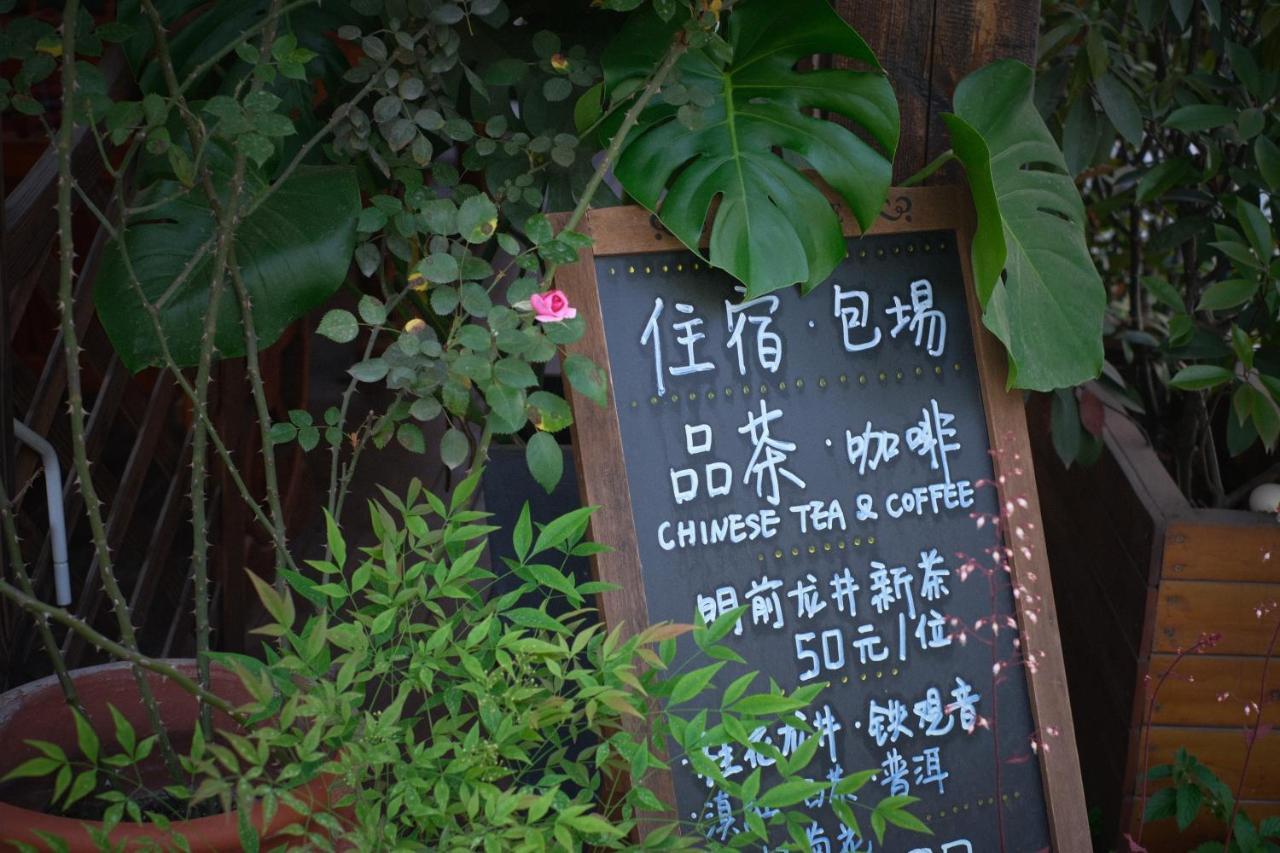 住宿·包場
品茶·咖啡
CHINESE TEA & COFFEE
明前龙井新茶
50元/位
桂花龙井·铁观音
滇红 茶·普洱
菊花